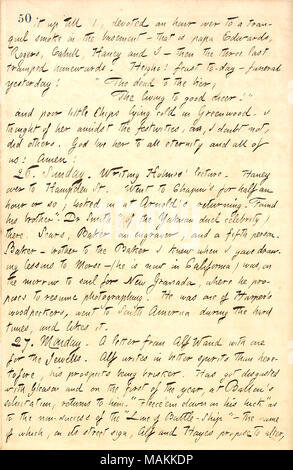 50
it up till 1, devoted an hour over to a tran-
quil smoke in the basement — that is papa Edwards,
Rogers, Cahill, Haney and I — then the three last
tramped homewards. Heigho! feast to-day — funeral
yesterday!
"The dead to the bier,
The living to good cheer!"
and poor little Chips lying cold in Greenwood. I
thought of her amidst the festivities, as, I doubt not,
did others. God love her to all eternity and all of
us! Amen!
26. Sunday. Writing Holmes' lecture. Haney
over to Hampden St. Went to Chapin's for half an
hour or so; looked in at Arnold's returning. Found
his brother: Dr Smith (of the Yucatan duel celebrity)
there. Sears, Baker an engraver, and a fifth person.
Baker — brother to the Baker I knew when I gave draw-
ing lessons to Morse — (he is now in California) was on
the morrow to sail for New Granada, where he pro-
poses to resume photographing. He was one of Harper's
woodpeckers, went to South America during the hard
times, and likes it.
27. Monday. A letter from Alf Waud with one
for the Jewells. Alf writes in better spirits than here-
tofore, his prospects being brisker. Has got disgusted
with Gleason and on the first of the year, at Ballou's
solicitation, returns to him. Fleece'em down on his luck as
to the non-success of the "Line of Battle-Ship" — the name
of which, on its street sign, Alf and Hayes propose to alter,
alamy
Image ID: MAKKDP
www.alamy.com